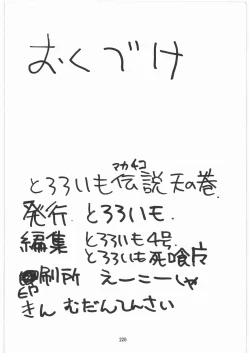 おくづけ
マカチコ
とろろいも伝説 天の巻.
発行. とろろいモ.
編集 とろろいも4号.
とろろいも死喰片
印刷所 えーこーしゃ
きん むだんてんさい
220